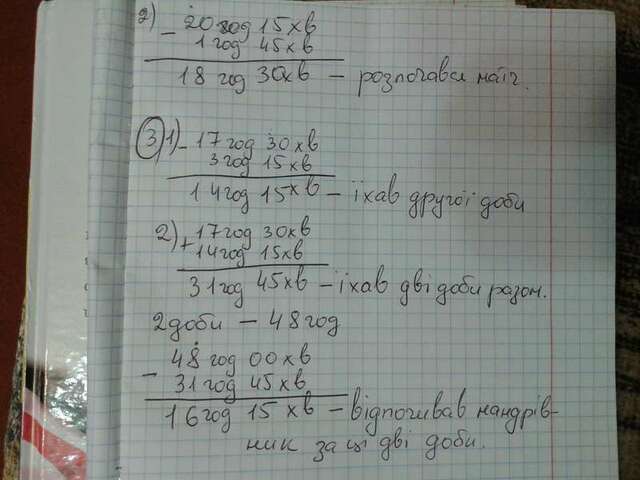 2) - 20 год 15 хв
1 год 45 хв
18 год 30 хв - розпочався матч.
3) 1) - 17 год 30 хв
3 год 15 хв
14 год 15 хв - їхав другої доби
2) + 17 год 30 хв
14 год 15 хв
31 год 45 хв - їхав дві доби разом.
2 доби - 48 год
- 48 год 00 хв
31 год 45 хв
16 год 15 хв - відпочивав мандрів-
ник за ці дві доби.